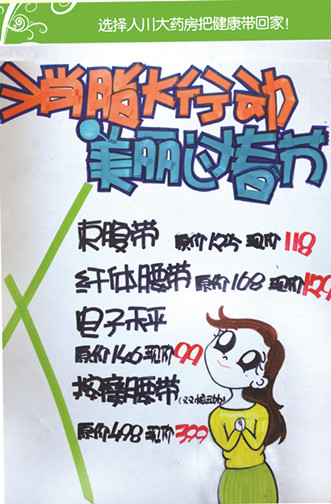 选择人川大药房把健康带回家!
消脂大行动
美丽过春节
束腰带 原价125 现价118
纤体腰带 原价168 现价
电子天平
原价146 现价99
按摩腰带
原价498 现价399